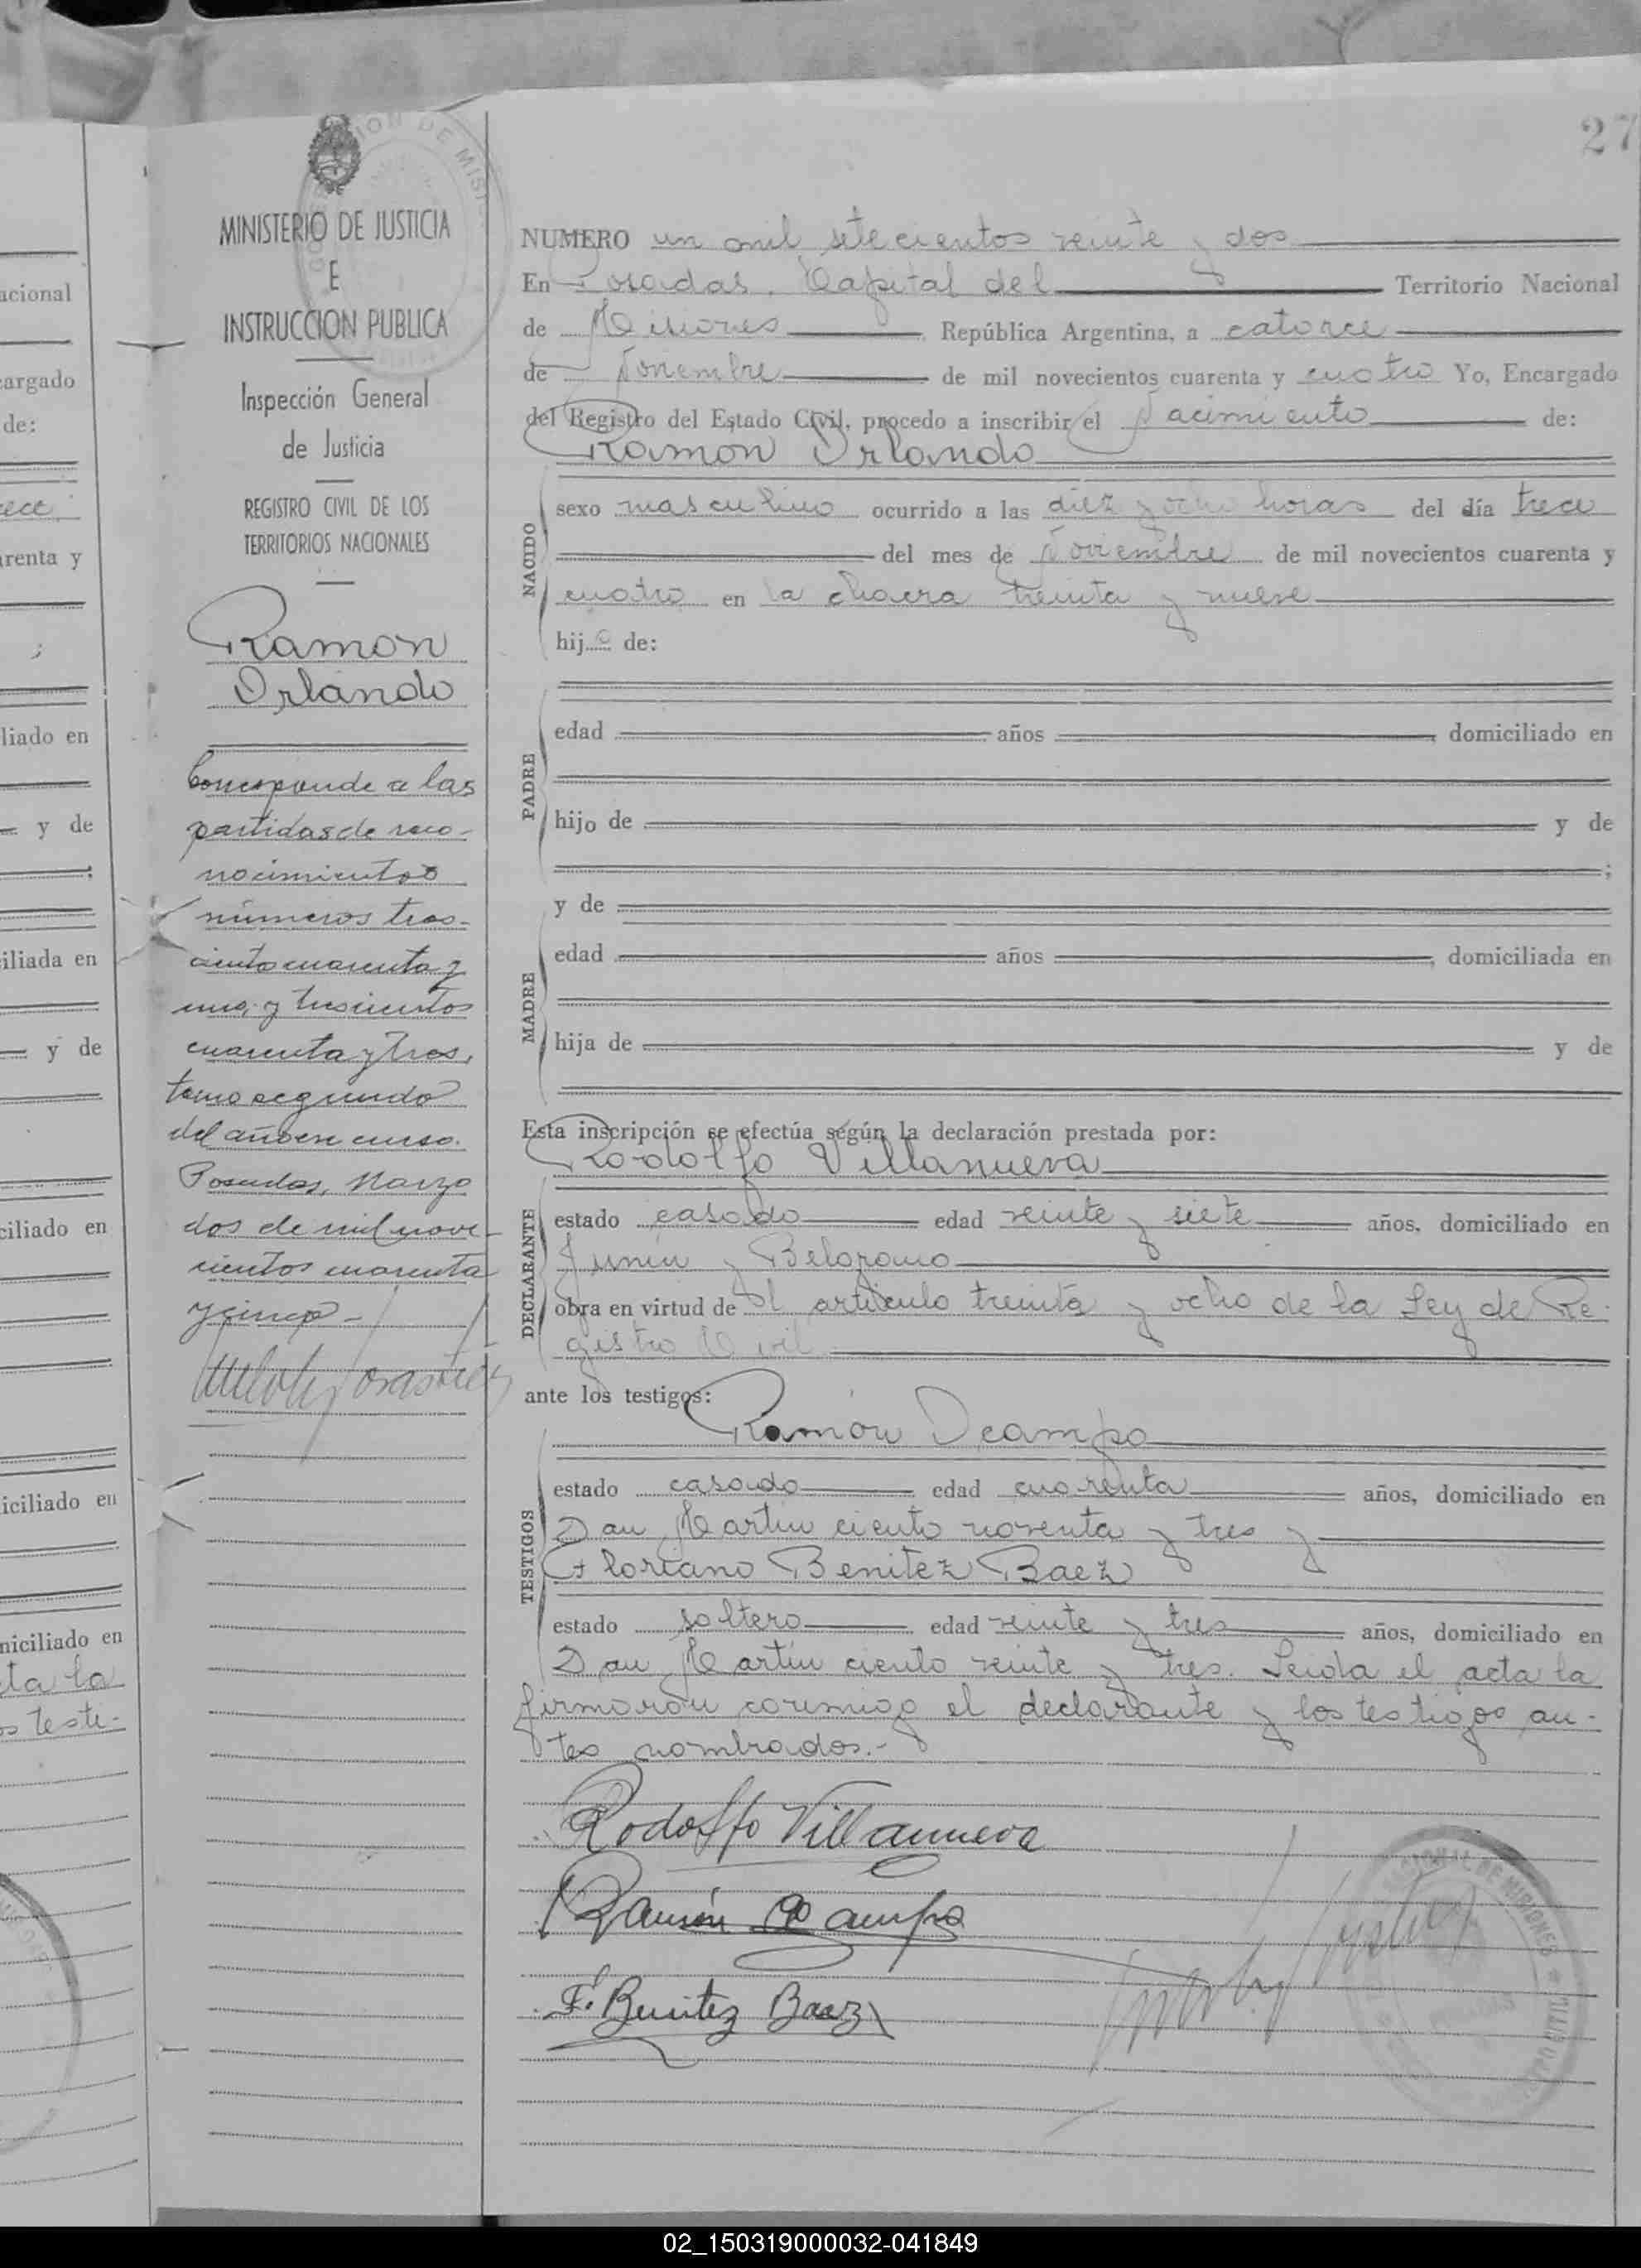 27
MINISTERIO DE JUSTICIA
E
INSTRUCCION PUBLICA
Inspección General
de Justicia
REGISTRO CIVIL DE LOS
TERRITORIOS NACIONALES
Ramon
Orlando
Corresponde a las
partidas de reco-
nocimientos
números tres-
ciento cuarenta y
uno, y trescientos
cuarenta y tres,
tomo segundo
del año en curso.
Posadas, Marzo
dos de mil nove-
cientos cuarenta
y cinco -
NUMERO un mil setecientos veinte y dos
En Posadas, Capital del Territorio Nacional
de Misiones República Argentina, a catorce
de Noviembre de mil novecientos cuarenta y cuatro Yo, Encargado
del Registro del Estado Civil, procedo a inscribir el Nacimiento de:
Ramon Orlando
NACIDO
sexo masculino ocurrido a las diez y ocho horas del día trece
del mes de Noviembre de mil novecientos cuarenta y
cuatro en la chacra treinta y nueve
hijo de:
PADRE
edad años domiciliado en
hijo de y de
;
y de
MADRE
edad años , domiciliada en
hija de y de
Esta inscripción se efectúa según la declaración prestada por:
Rodolfo Villanueva
DECLARANTE
estado casado edad veinte y siete años, domiciliado en
Junin y Belgrano
obra en virtud de el articulo treinta y ocho de la Ley de Re-
gistro Civil
ante los testigos:
Ramón Ocampo
TESTIGOS
estado casado edad cuarenta años, domiciliado en
San Martin ciento noventa y tres y
Floriano Benitez Baez
estado soltero edad veinte y tres años, domiciliado en
San Martin ciento veinte y tres. Leida el acta la
firmaron conmigo el declarante y los testigos an-
tes nombrados.-
Rodolfo Villanueva
Ramón Ocampo
F. Benitez Baez
acional
cargado
de:
rece
arenta y
;
liado en
y de
;
iliada en
y de
ciliado en
iciliado en
niciliado en
ta la
os testi-
02_150319000032-041849